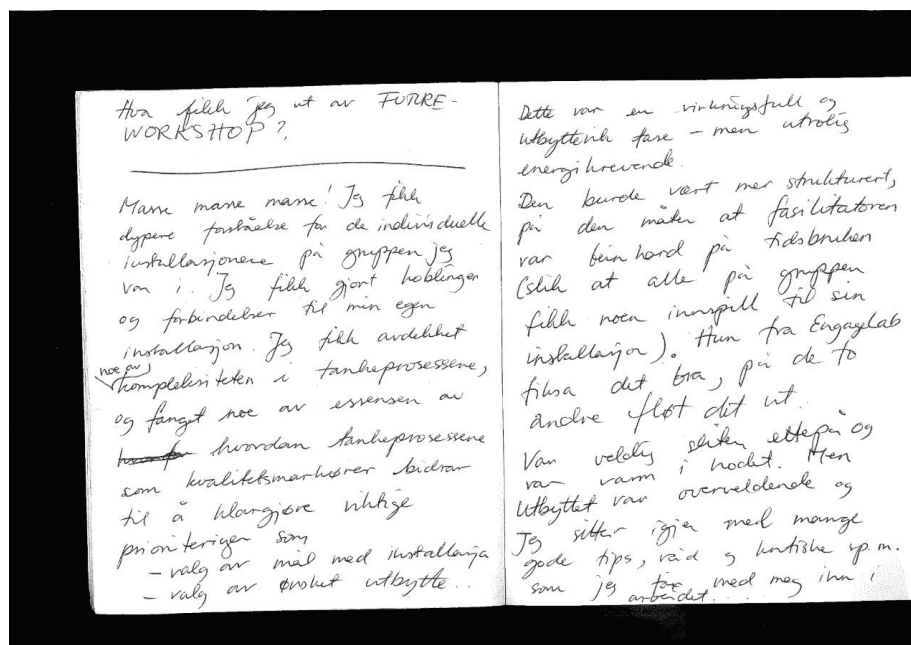 Hva fikk jeg ut av FUTURE-
WORKSHOP?
Masse masse masse! Jeg fikk
dypere forståelse for de individuelle
installasjonene på gruppen jeg
var i. Jeg fikk gjort koblinger
og forbindelser til min egen
installasjon. Jeg fikk avdekket
noe av
kompleksiteten i tankeprosessene,
og fanget noe av essensen av
hvordan tankeprosessene
som kvalitetsmarkører bidrar
til å klargjøre viktige
prioriteringer som
- valg av mål med installasja
- valg av ønsket utbytte..
Dette var en virkningsfull og
utbytterik fase - men utrolig
energikrevende.
Den burde vært mer strukturert,
på den måten at fasilitatoren
var beinhard på tidsbruken
(slik at alle på gruppen
fikk noen innspill til sin
installasjon). Hun fra EngageLab
fiksa det bra, på de to
andre fløt det ut.
Var veldig sliten etterpå og
var varm i hodet. Men
utbyttet var overveldende og
Jeg sitter igjen med mange
gode tips, råd og kritiske sp.m.
som jeg tar med meg inn i
arbeidet...